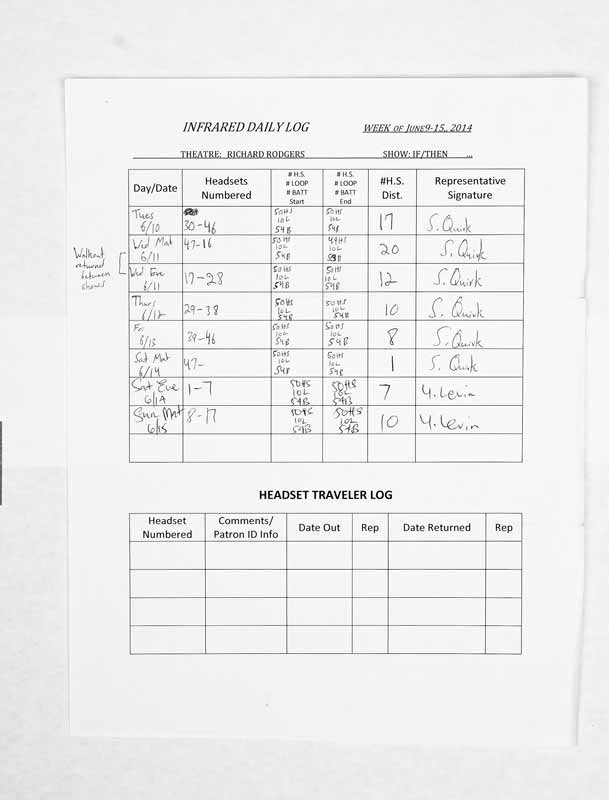 INFRARED DAILY LOG WEEK OF JUNE9-15,, 2014
THEATRE: RICHARD RODGERS SHOW: IF/THEN ...
Day/Date Headsets Numbered # H.S. # LOOP # BATT Start # H.S. # LOOP # BATT End #H.S. Dist. Representative Signature
Tues 6/10 30-46 50HS 10L 54B 50HS 10L 54B 17 S. Quirk
Wed Mat 6/11 47-16 50HS 10L 54B 49HS 10L 53B 20 S. Quirk
Walkout returned between shows
Wed Eve 6/11 17-28 50HS 10L 54B 50HS 10L 54B 12 S. Quirk
Thurs 6/12 29-38 50HS 10L 54B 50HS 10L 54B 10 S. Quirk
Fri 6/13 39-46 50HS 10L 54B 50HS 10L 54B 8 S. Quirk
Sat Mat 6/14 47- 50HS 10L 54B 50HS 10L 54B 1 S. Quirk
Sat Eve 6/14 1-7 50HS 10L 54B 50HS 10L 54B 7 Y. Levin
Sun Mat 6/15 8-17 50HS 10L 54B 50HS 10L 54B 10 Y. Levin
HEADSET TRAVELER LOG
Headset Numbered Comments/ Patron ID Info Date Out Rep Date Returned Rep